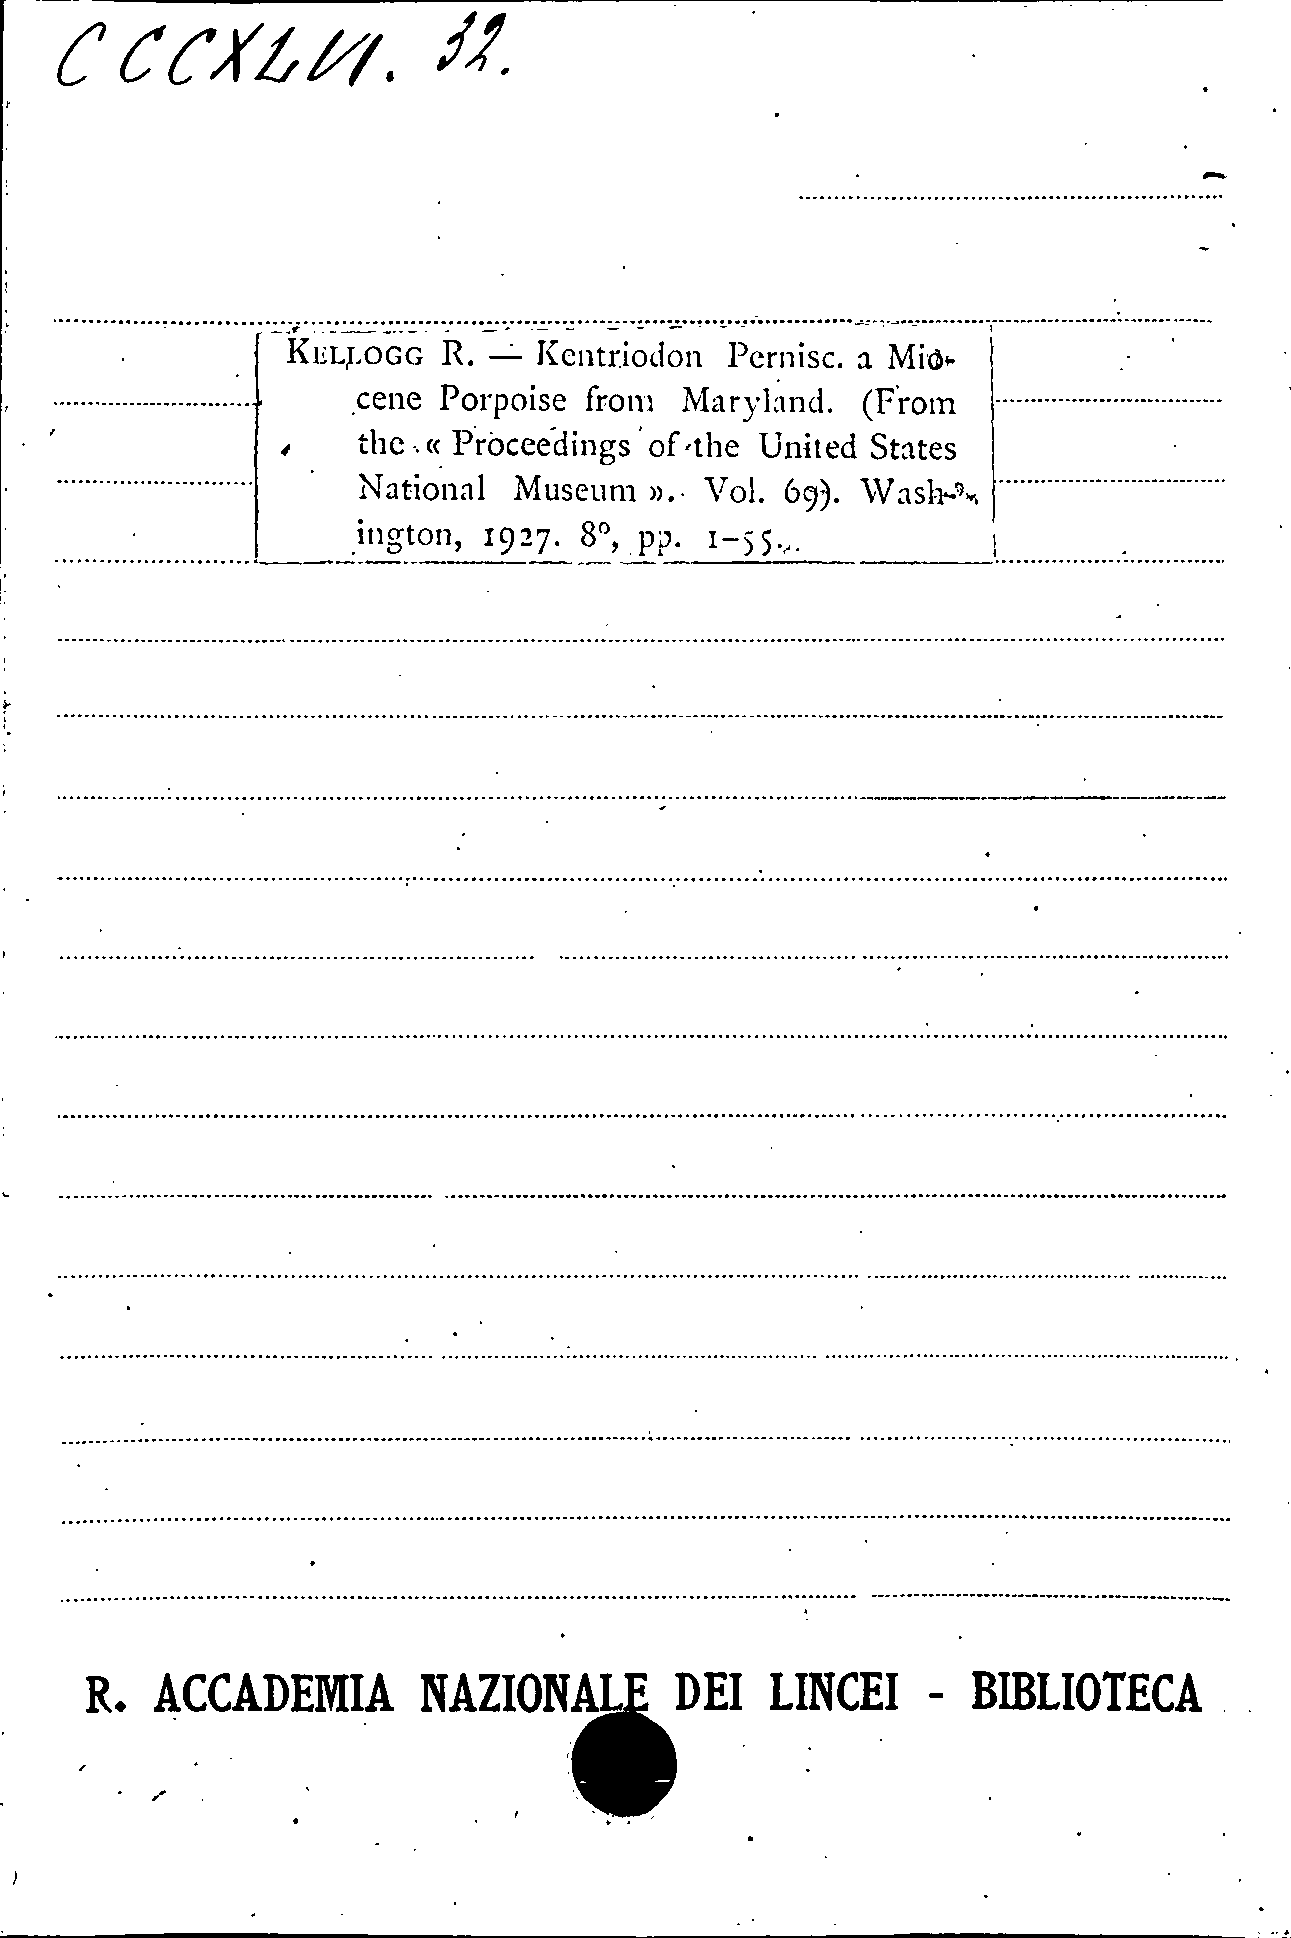 CCCXLVI. 32.
KELLOGG R. — Kentriodon Pernisc. a Mio-
cene Porpoise from Maryland. (From
the « Proceedings of the United States
National Museum ». Vol. 69). Wash-
ington, 1927. 8°, pp. 1-55.
R. ACCADEMIA NAZIONALE DEI LINCEI - BIBLIOTECA